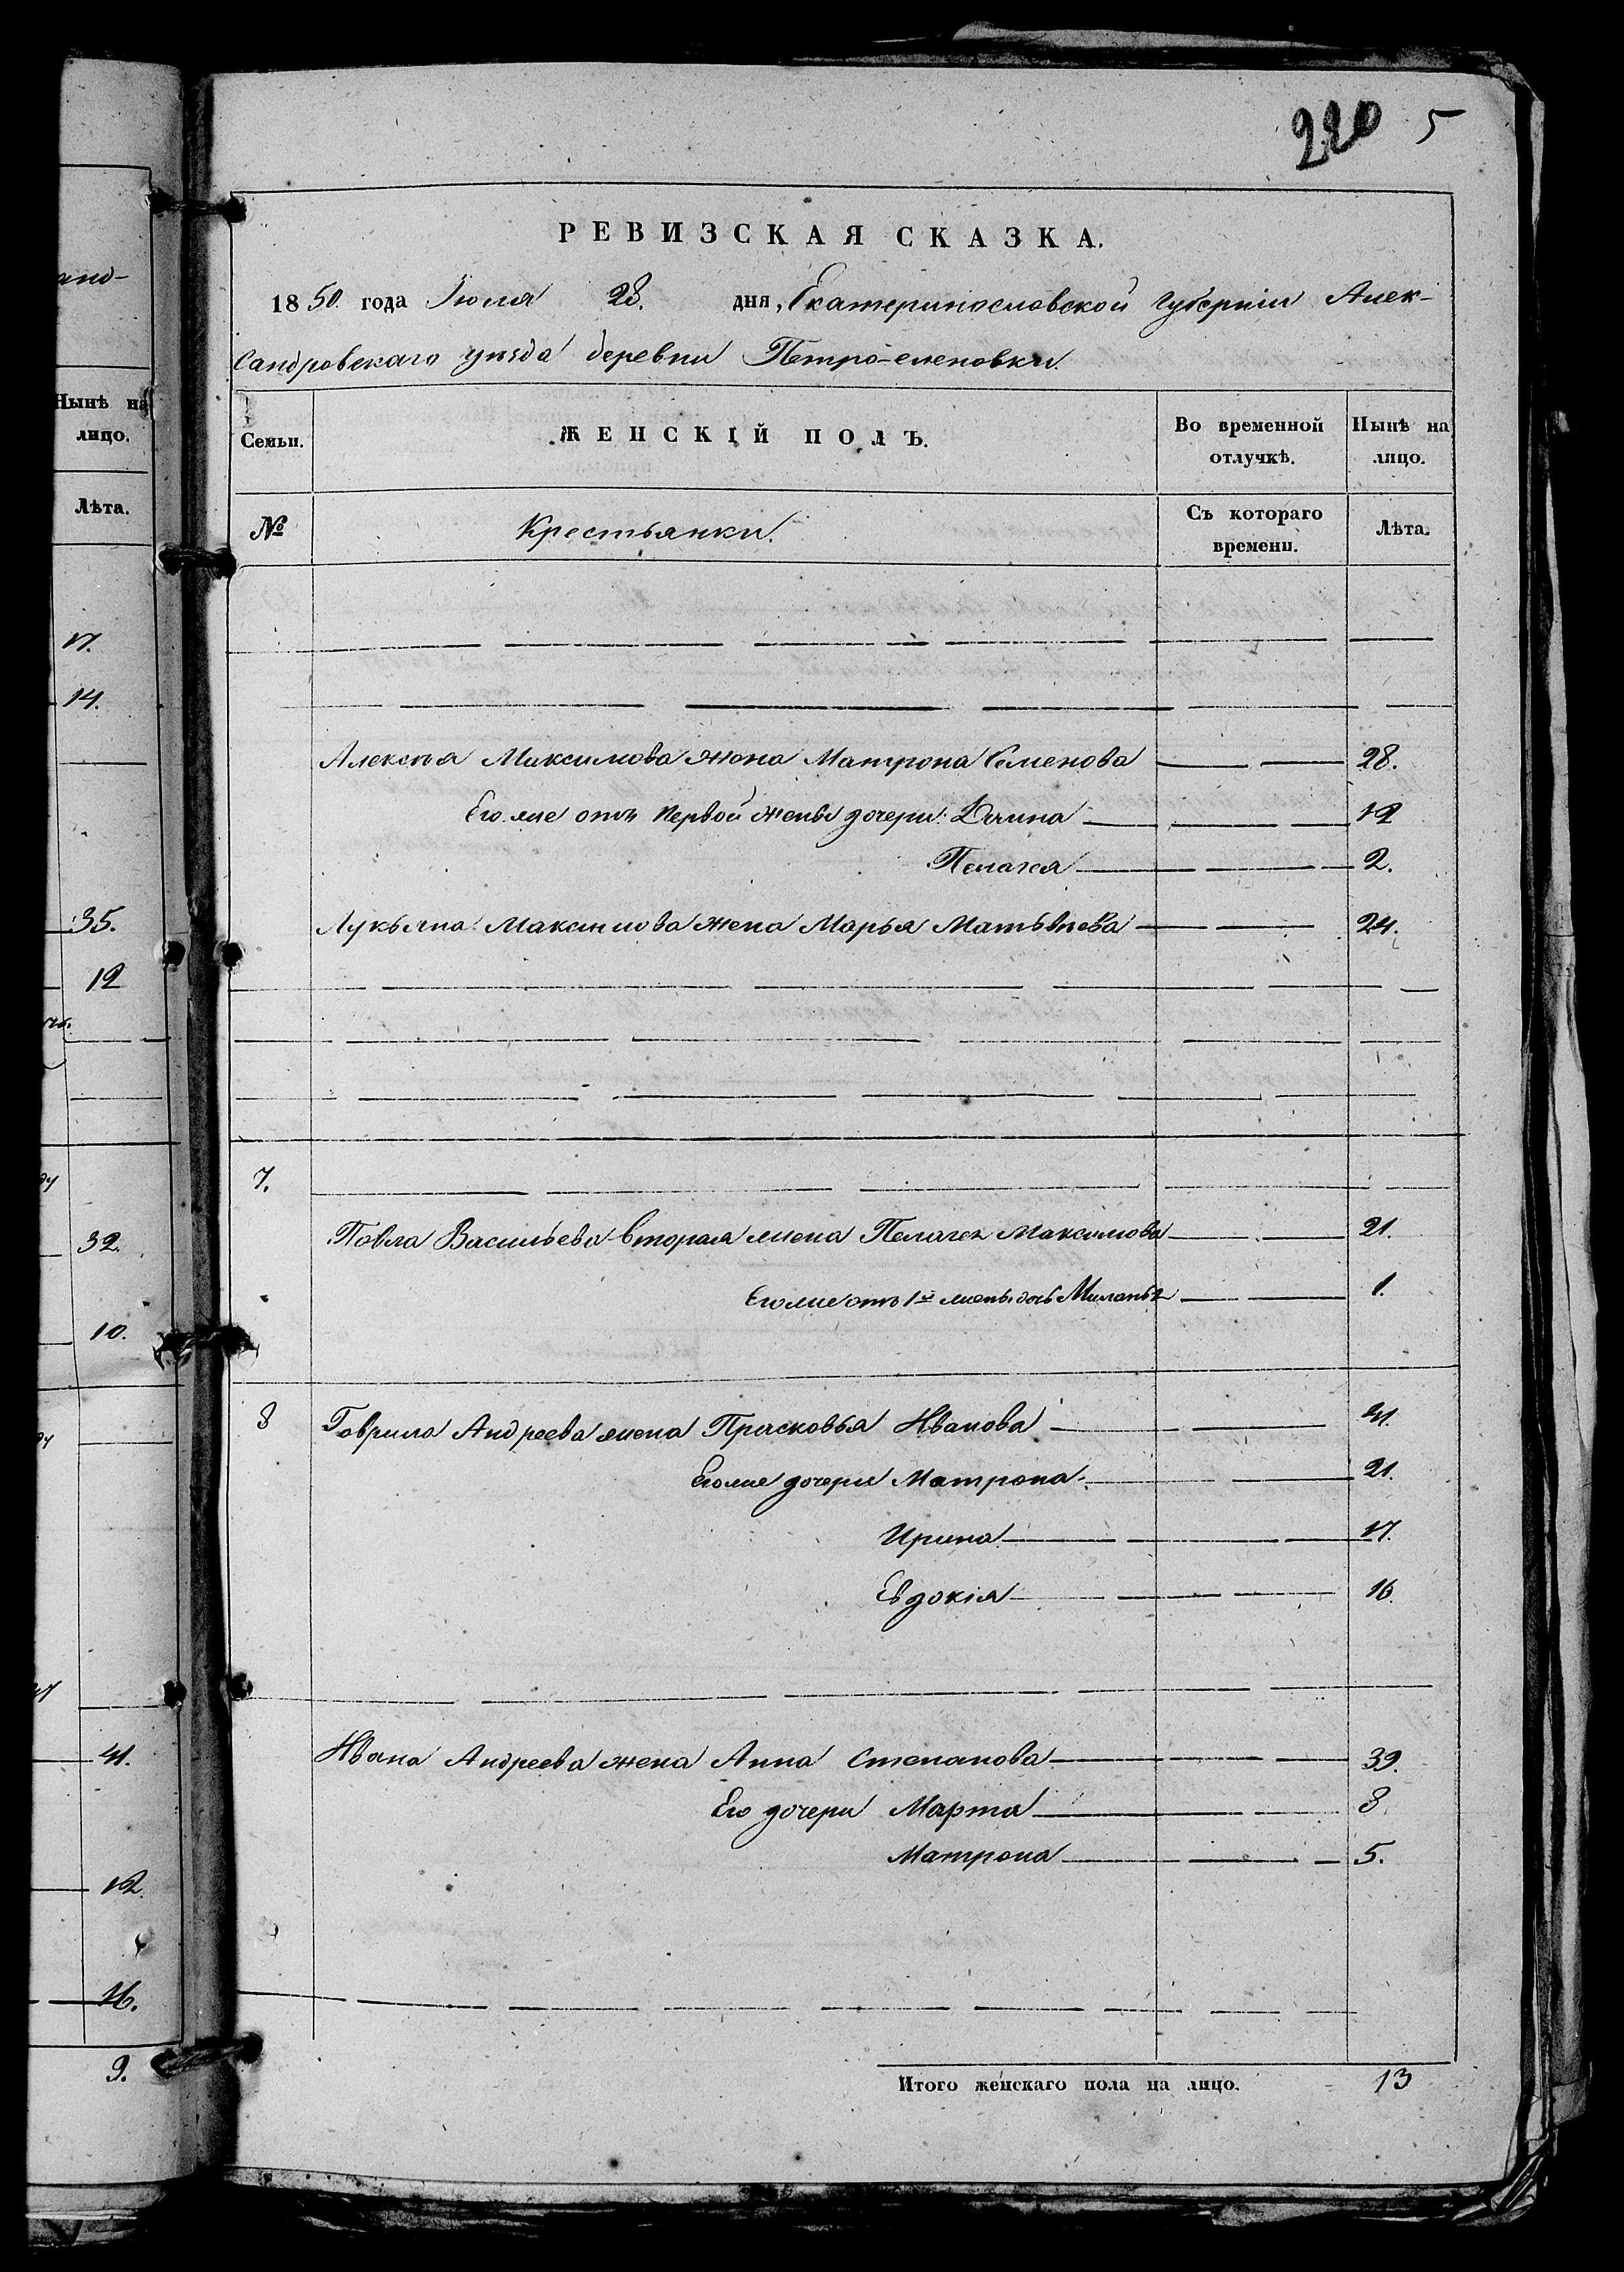 220 5
РЕВИЗСКАЯ СКАЗКА.
1850. года Іюля 28. дня, Екатеринославской губерніи Алек-
сандровскаго уѣзда деревни Петро-еленовки.
Семьи. ЖЕНСКІЙ ПОЛЪ. Во временной отлучкѣ. Нынѣ на лицо.
№ Крестьянки. Съ котораго времени. Лѣта.
Алексѣя Максимова жена Матрона Семенова 28.
Его же отъ первой жены дочери: 12
Пелагея 2.
Лукьяна Максимова жена Марья Матьвѣева 24.
7.
Павла Васильева вторая жена Пелагея Максимова 21.
Его же отъ 1й жены дочь Миланья 1.
8 Гаврила Андреева жена Прасковья Иванова 41.
Его же дочери Матрона 21.
Ирина 17.
Евдокія 16.
Ивана Андреева жена Анна Степанова 39.
Его дочери Марта 8
Матрона 5.
Итого женскаго пола на лицо. 13
Нынѣ на
лицо.
Лѣта.
17.
14.
35.
12
32.
10.
41.
12.
16.
9.